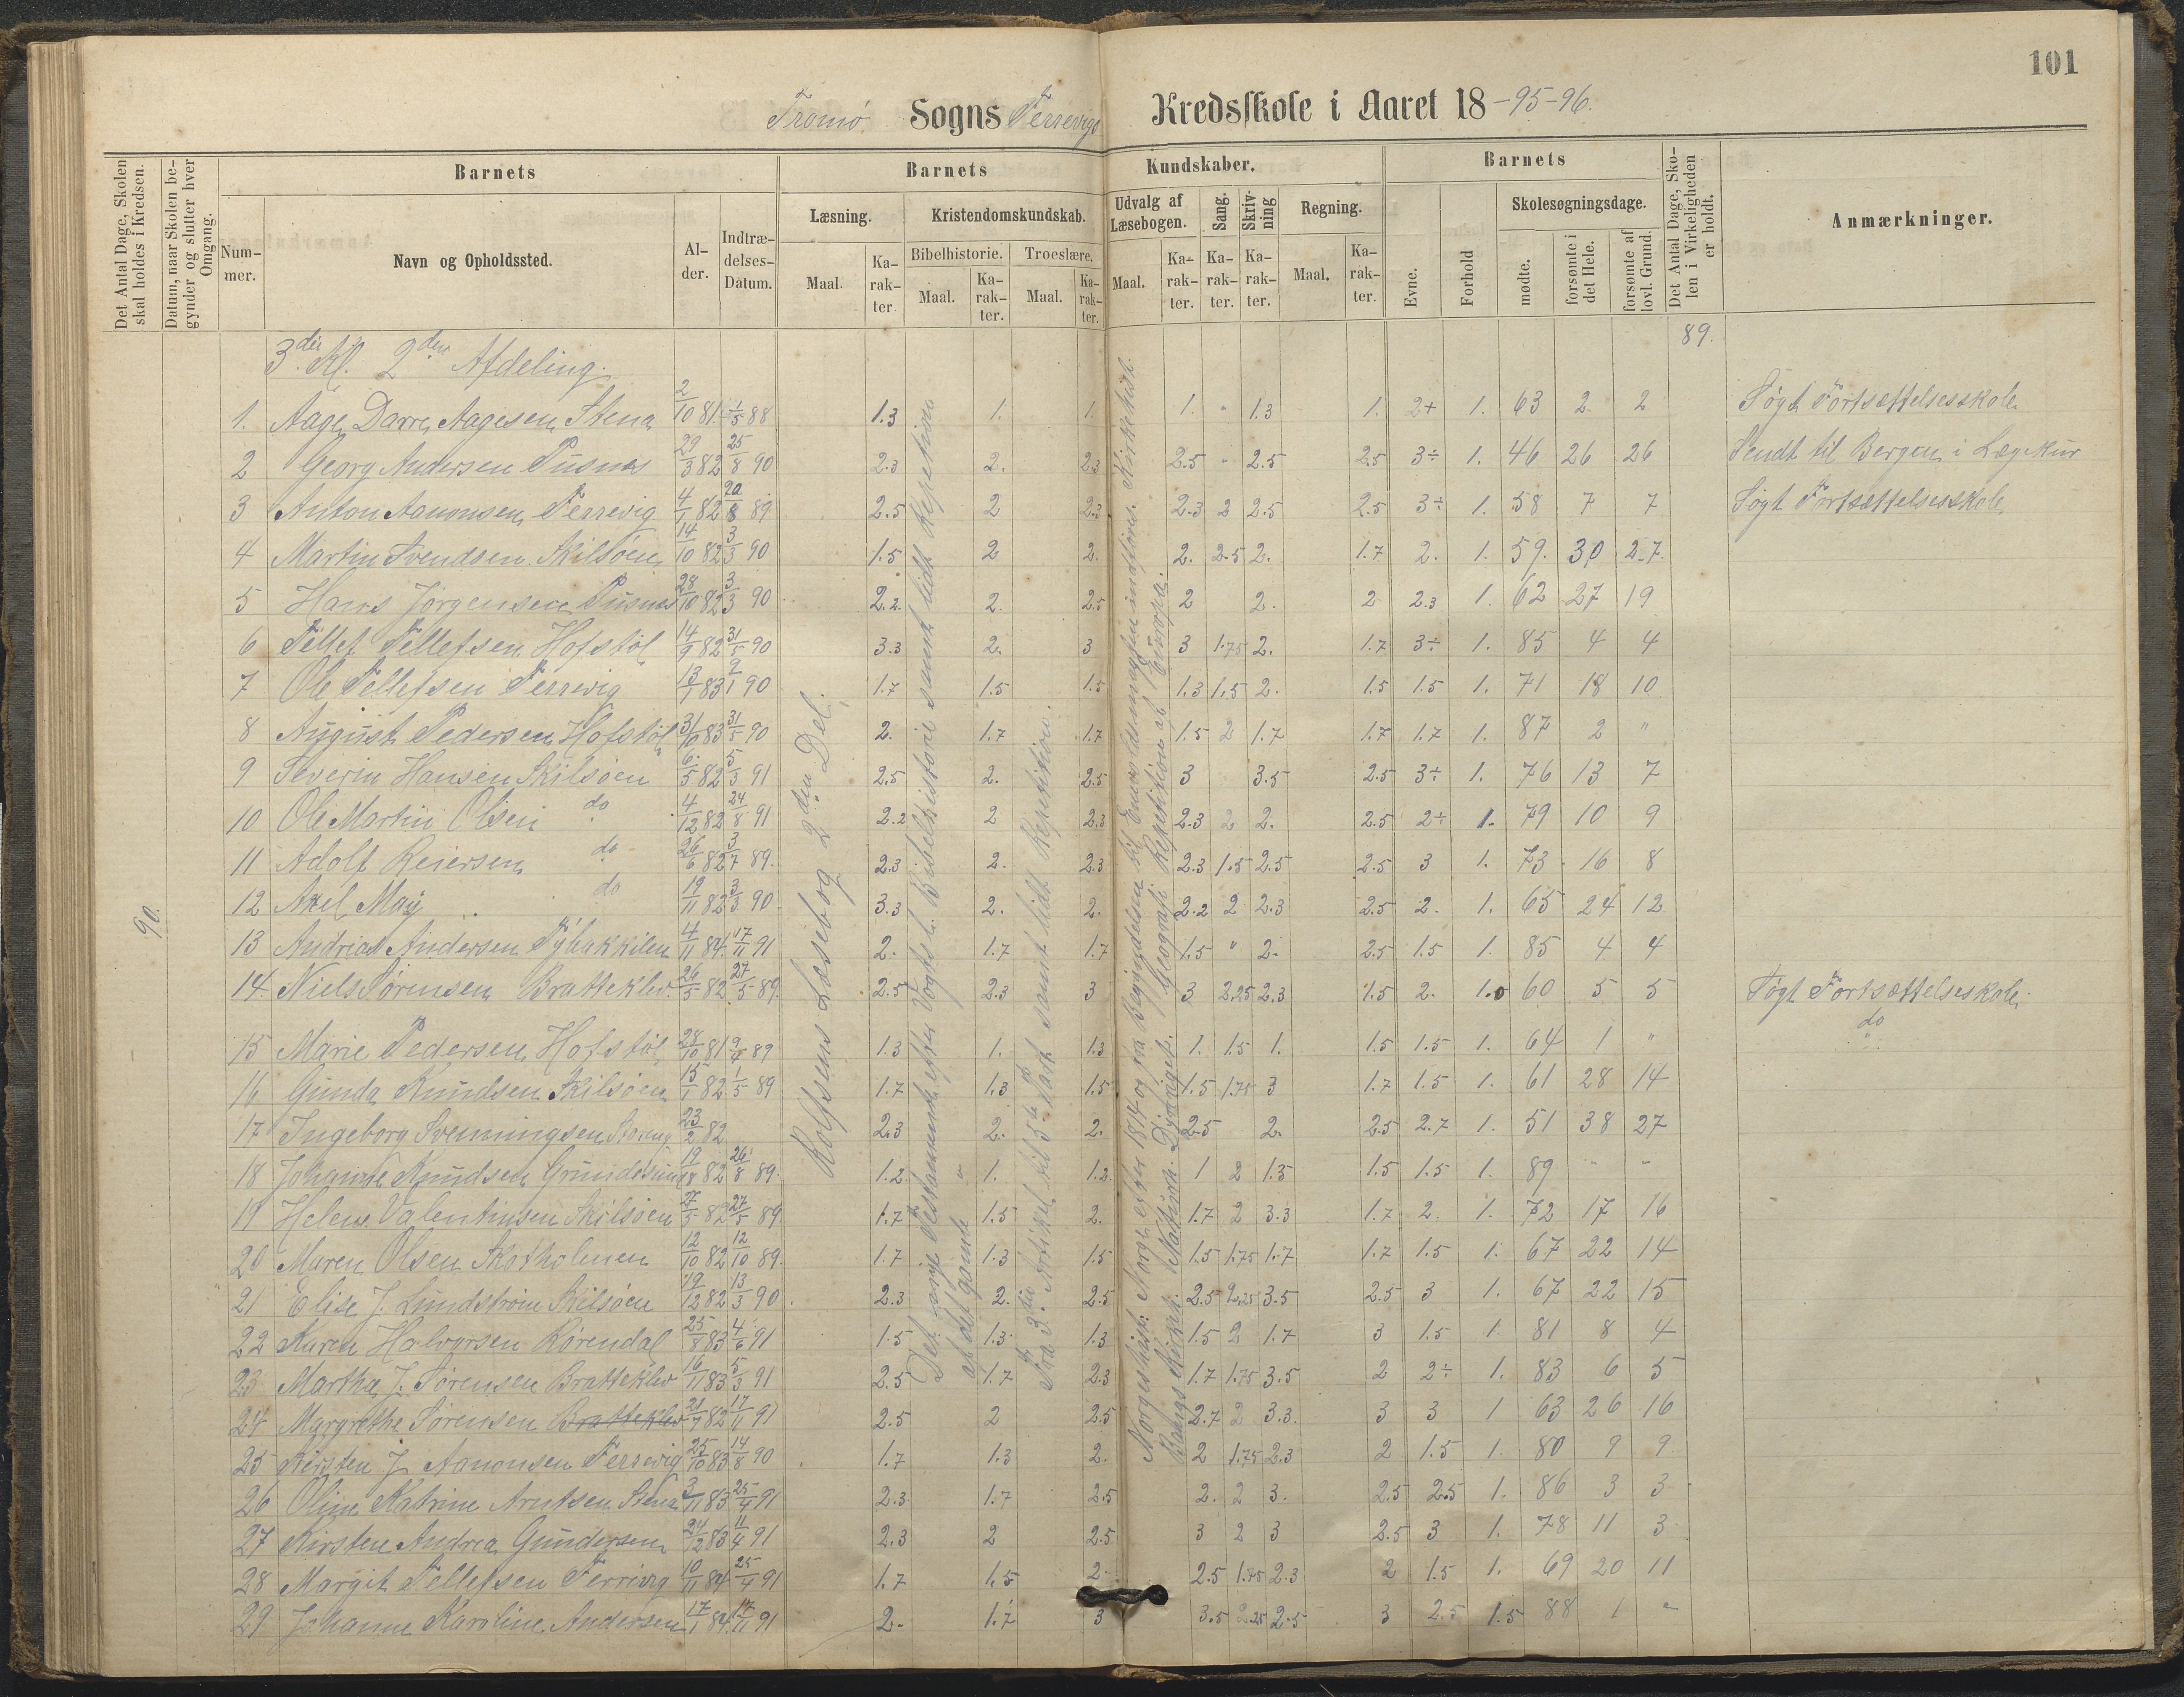 101
Tromø Sogns Terrevigs Kredsskole i Aaret 18-95-96.
Det Antal Dage, Skolen skal holdes i Kredsen.
Datum, naar Skolen begynder og slutter hver Omgang.
Barnets
Barnets Kundskaber.
Barnets
Det Antal Dage, Skolen i Virkeligheden er holdt.
Anmærkninger.
Nummer. Navn og Opholdssted. Alder. Indtrædelses-Datum.
Læsning. Kristendomskundskab. Udvalg af Læsebogen. Sang. Skrivning Regning. Evne. Forhold Skolesøgningsdage.
Bibelhistorie. Troeslære.
Maal. Karakter Maal. Karakter. Maal. Karakter. Maal. Karakter. Karakter. Karakter. Maal. Karakter. mødte. forsømte i det Hele. forsømte af lovl. Grund.
90.
89.
3die Kl. 2den Afdeling.
1. Aage Darre Aagesen Stena 2/10 81 1/5 88 1.3 1. 1. 1. " 1.3 1. 2+ 1. 63 2 2 Søgt Fortsættelsesskole
2 Georg Andersen Pusnes 29/3 82 25/8 90 2.3 2. 2.3 2.5 " 2.5 2.5 3÷ 1. 46 26 26 Sendt til Bergen i Lægekur
3 Anton Aanonsen Terrevig 4/1 82 20/8 89 2.5 2 2.3 2.3 2 2.5 2.5 3÷ 1. 58 7 7 Søgt Fortsættelsesskole
4 Martin Svendsen Skilsøen 14/10 82 3/3 90 1.5 2 2. 2. 2.5 2. 1.7 2. 1. 59. 30 27.
5 Hans Jørgensen Pusnes 28/10 82 3/3 90 2.2. 2. 2.5 2 2. 2 2.3 1. 62 27 19
6 Tellef Tellefsen Hofstøl 14/9 82 31/5 90 3.3 2. 3 3 1.75 2. 1.7 3÷ 1. 85 4 4
7 Ole Tellefsen Terrevig 13/1 83 9/1 90 1.7 1.5 1.5 1.3 1.5 2. 1.5 1.5 1. 71 18 10
8 August Pedersen Hofstøl 31/10 83 31/5 90 2. 1.7 1.7 1.5 2 1.7 1.7 1.7 1. 87 2 "
9 Severin Hansen Skilsøen 6/5 82 5/3 91 2.5 2. 2.5 3 3.5 2.5 3÷ 1. 76 13 7
10 Ole Martin Olsen do 4/12 82 24/8 91 2.2 2 2.3 2.3 2 2. 2.5 2÷ 1. 79 10 9
11 Adolf Reiersen do 26/6 82 3/7 89. 2.3 2. 2.3 2.3 1.5 2.5 2.5 3 1. 73 16 8
12 Axel May do 19/11 82 3/3 90 3.3 2. 2. 2.2 2 2.3 2.5 2. 1. 65 24 12
13 Andreas Andersen Tybakkilen 4/11 84. 17/11 91 2. 1.7 1.7 1.5 " 2. 2.5 1.5 1. 85 4 4
14. Niels Sørensen Bratteklev. 26/5 82 27/5 89. 2.5 2.3 3 3 2.25 2.3 1.5 2. 1.0 60 5 5 Søgt Fortsættelseskole
15 Marie Pedersen Hofstøl 28/10 81 9/7 89 1.3 1. 1.3 1. 1.5 1. 1.5 1.5 1. 64 1 " do
16 Gunda Knudsen Skilsøen 15/1 82 1/5 89 1.7 1.3 1.5 1.5 1.75 3 1.7 1.5 1. 61 28 14
17 Ingeborg Svenningsen 23/2 82 2.3 2. 2. 2.5 2. 2.5 2.7 1. 51 38 27
18 Johanne Knudsen Grundesund 19/8 82 26/8 89. 1.2. 1. 1.2 1 2 1.3 1.5 1.5 1. 89 " "
19 Helene Valentinsen Skilsøen 27/5 82 27/5 89. 1.7 1.5 2. 1.7 2 3.3 1.7 2. 1. 72 17 16
20 Maren Olsen Skotholmen 12/10 82 12/10 89. 1.7 1.3 1.5 1.5 1.75 1.7 1.7 1.5 1. 67 22 14
21 Elise J. Lundstrøm Skilsøen 19/12 82 13/3 90. 2.3 2. 2.5 2.5 2.25 3.5 2.5 3 1. 67 22 15
22 Karen Halvorsen Rørendal 25/8 83 4/6 91 1.5 1.3 1.3 1.5 2 1.7 3 1.5 1. 81 8 4
23 Martha J. Sørensen Bratteklev 16/11 83 5/3 91 2.5 1.7 2.3 1.7 1.75 3.5 2 2÷ 1. 83 6 5
24 Margrethe Sørensen Bratteklev 21/7 82 17/11 91 2.5 2 2.5 2.7 2 3.3. 3 3 1 63 26 16
25 Kirsten J. Aanonsen Terrevig 25/10 83 14/8 90 1.7 1.3 2. 2 1.75 2.3 2 1.5 1. 80 9 9
26 Oline Katrine Arntsen Stena 3/11 83 25/4 91 2.3 1.7 2.5 2. 2 3. 2.5 2.5 1. 86 3 3
27 Kirsten Andrea Gundersen 24/12 83 11/4 91 2.3 2 2.5 3 2 3 2.5 3 1. 78 11 3
28 Margit Tellefsen Terrivig 10/11 84 25/4 91 1.7 1.5 2. 2.5 1.75 2.3 2 1.5 1. 69 20 11
29 Johanne Karoline Andersen 17/1 84 17/11 91 2. 1.7 3 3.5 2.25 2.5 3 2.5 1.5 88 1 "
Rolfsens Læsebog 2den Del.
Det nye Testamente efter Vogts l. Bibelhistorie samt lidt Repetition
af det gamle
Fra 3die Artikel til 5te Part samt lidt Repetition.
Norgeshist: Norge efter 1814 og fra Begyndelsen til Enevoldsmagten indføres. Kirkehist.
Bangs Kirkeh. Naturh. Dyreriget. Geografi Repetition af Europa.